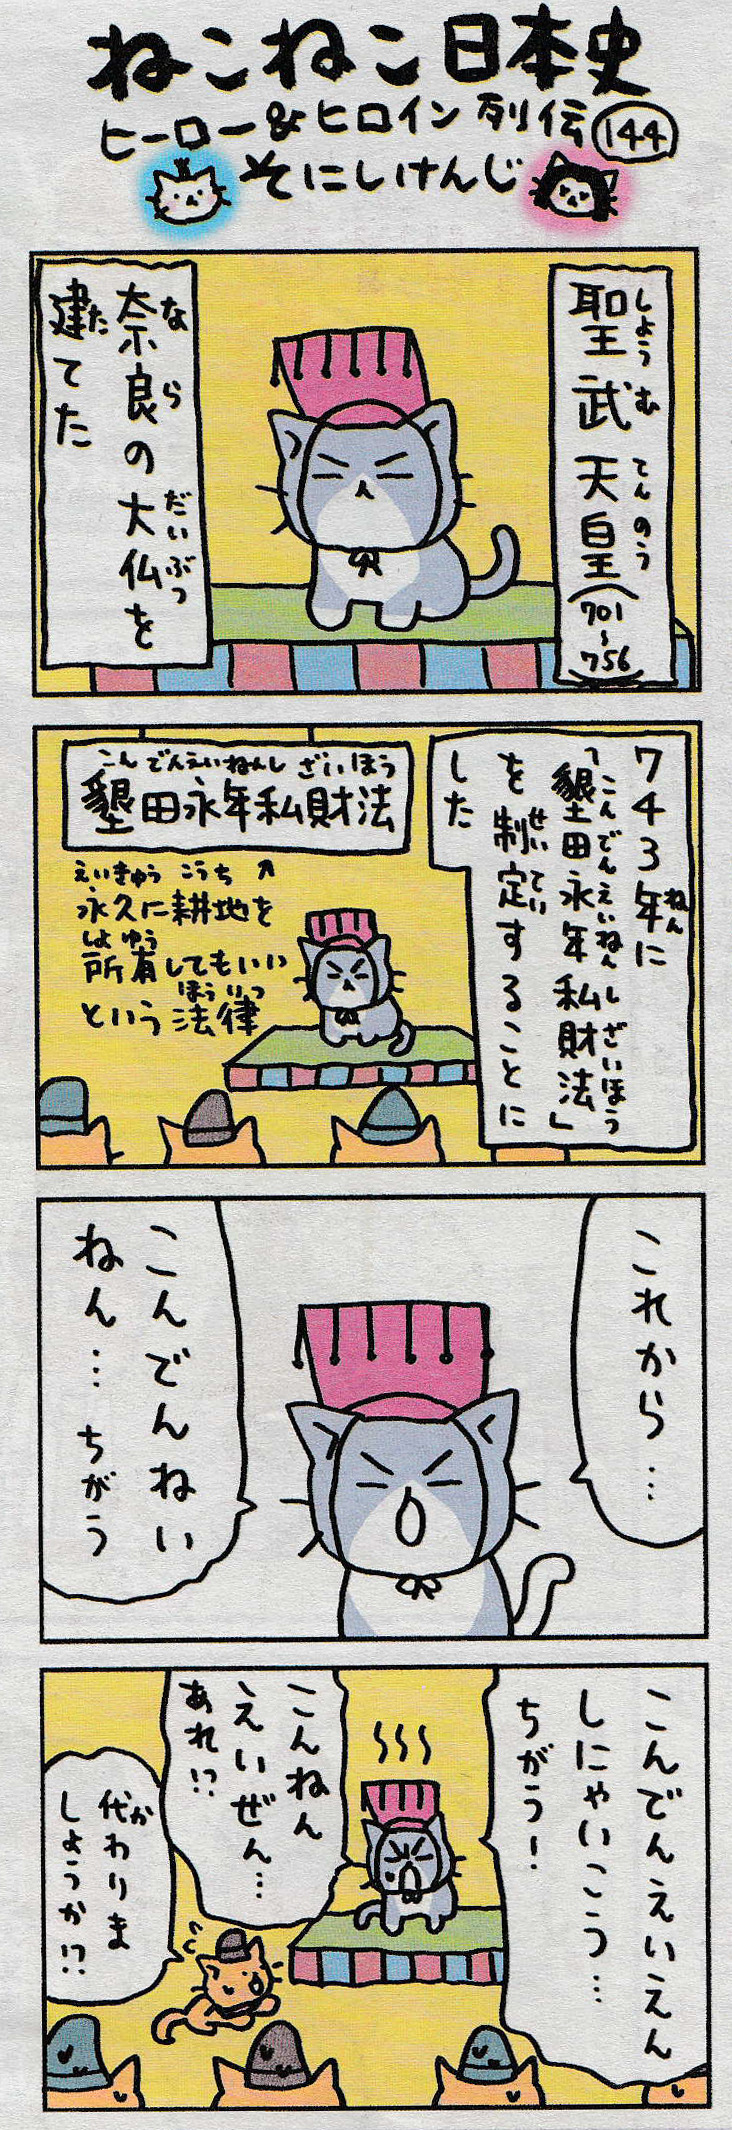 ねこねこ日本史
ヒーロー&ヒロイン列伝 144
そにしけんじ
聖武天皇(701~756)
しょうむてんのう
奈良の大仏を
ならだいぶつ
建てた
た
743年に
ねん
「墾田永年私財法」
こんでんえいねんしざいほう
を制定することに
せいてい
した
こんでんえいねんしざいほう
墾田永年私財法
えいきゅう こうち ↗
永久に耕地を
しょゆう
所有してもいい
ほうりつ
という法律
これから…
こんでんねい
ねん…ちがう
こんでんえいえん
しにゃいこう…
ちがう!
こんねん
えいぜん…
あれ!?
代わりま
か
しょうか!?